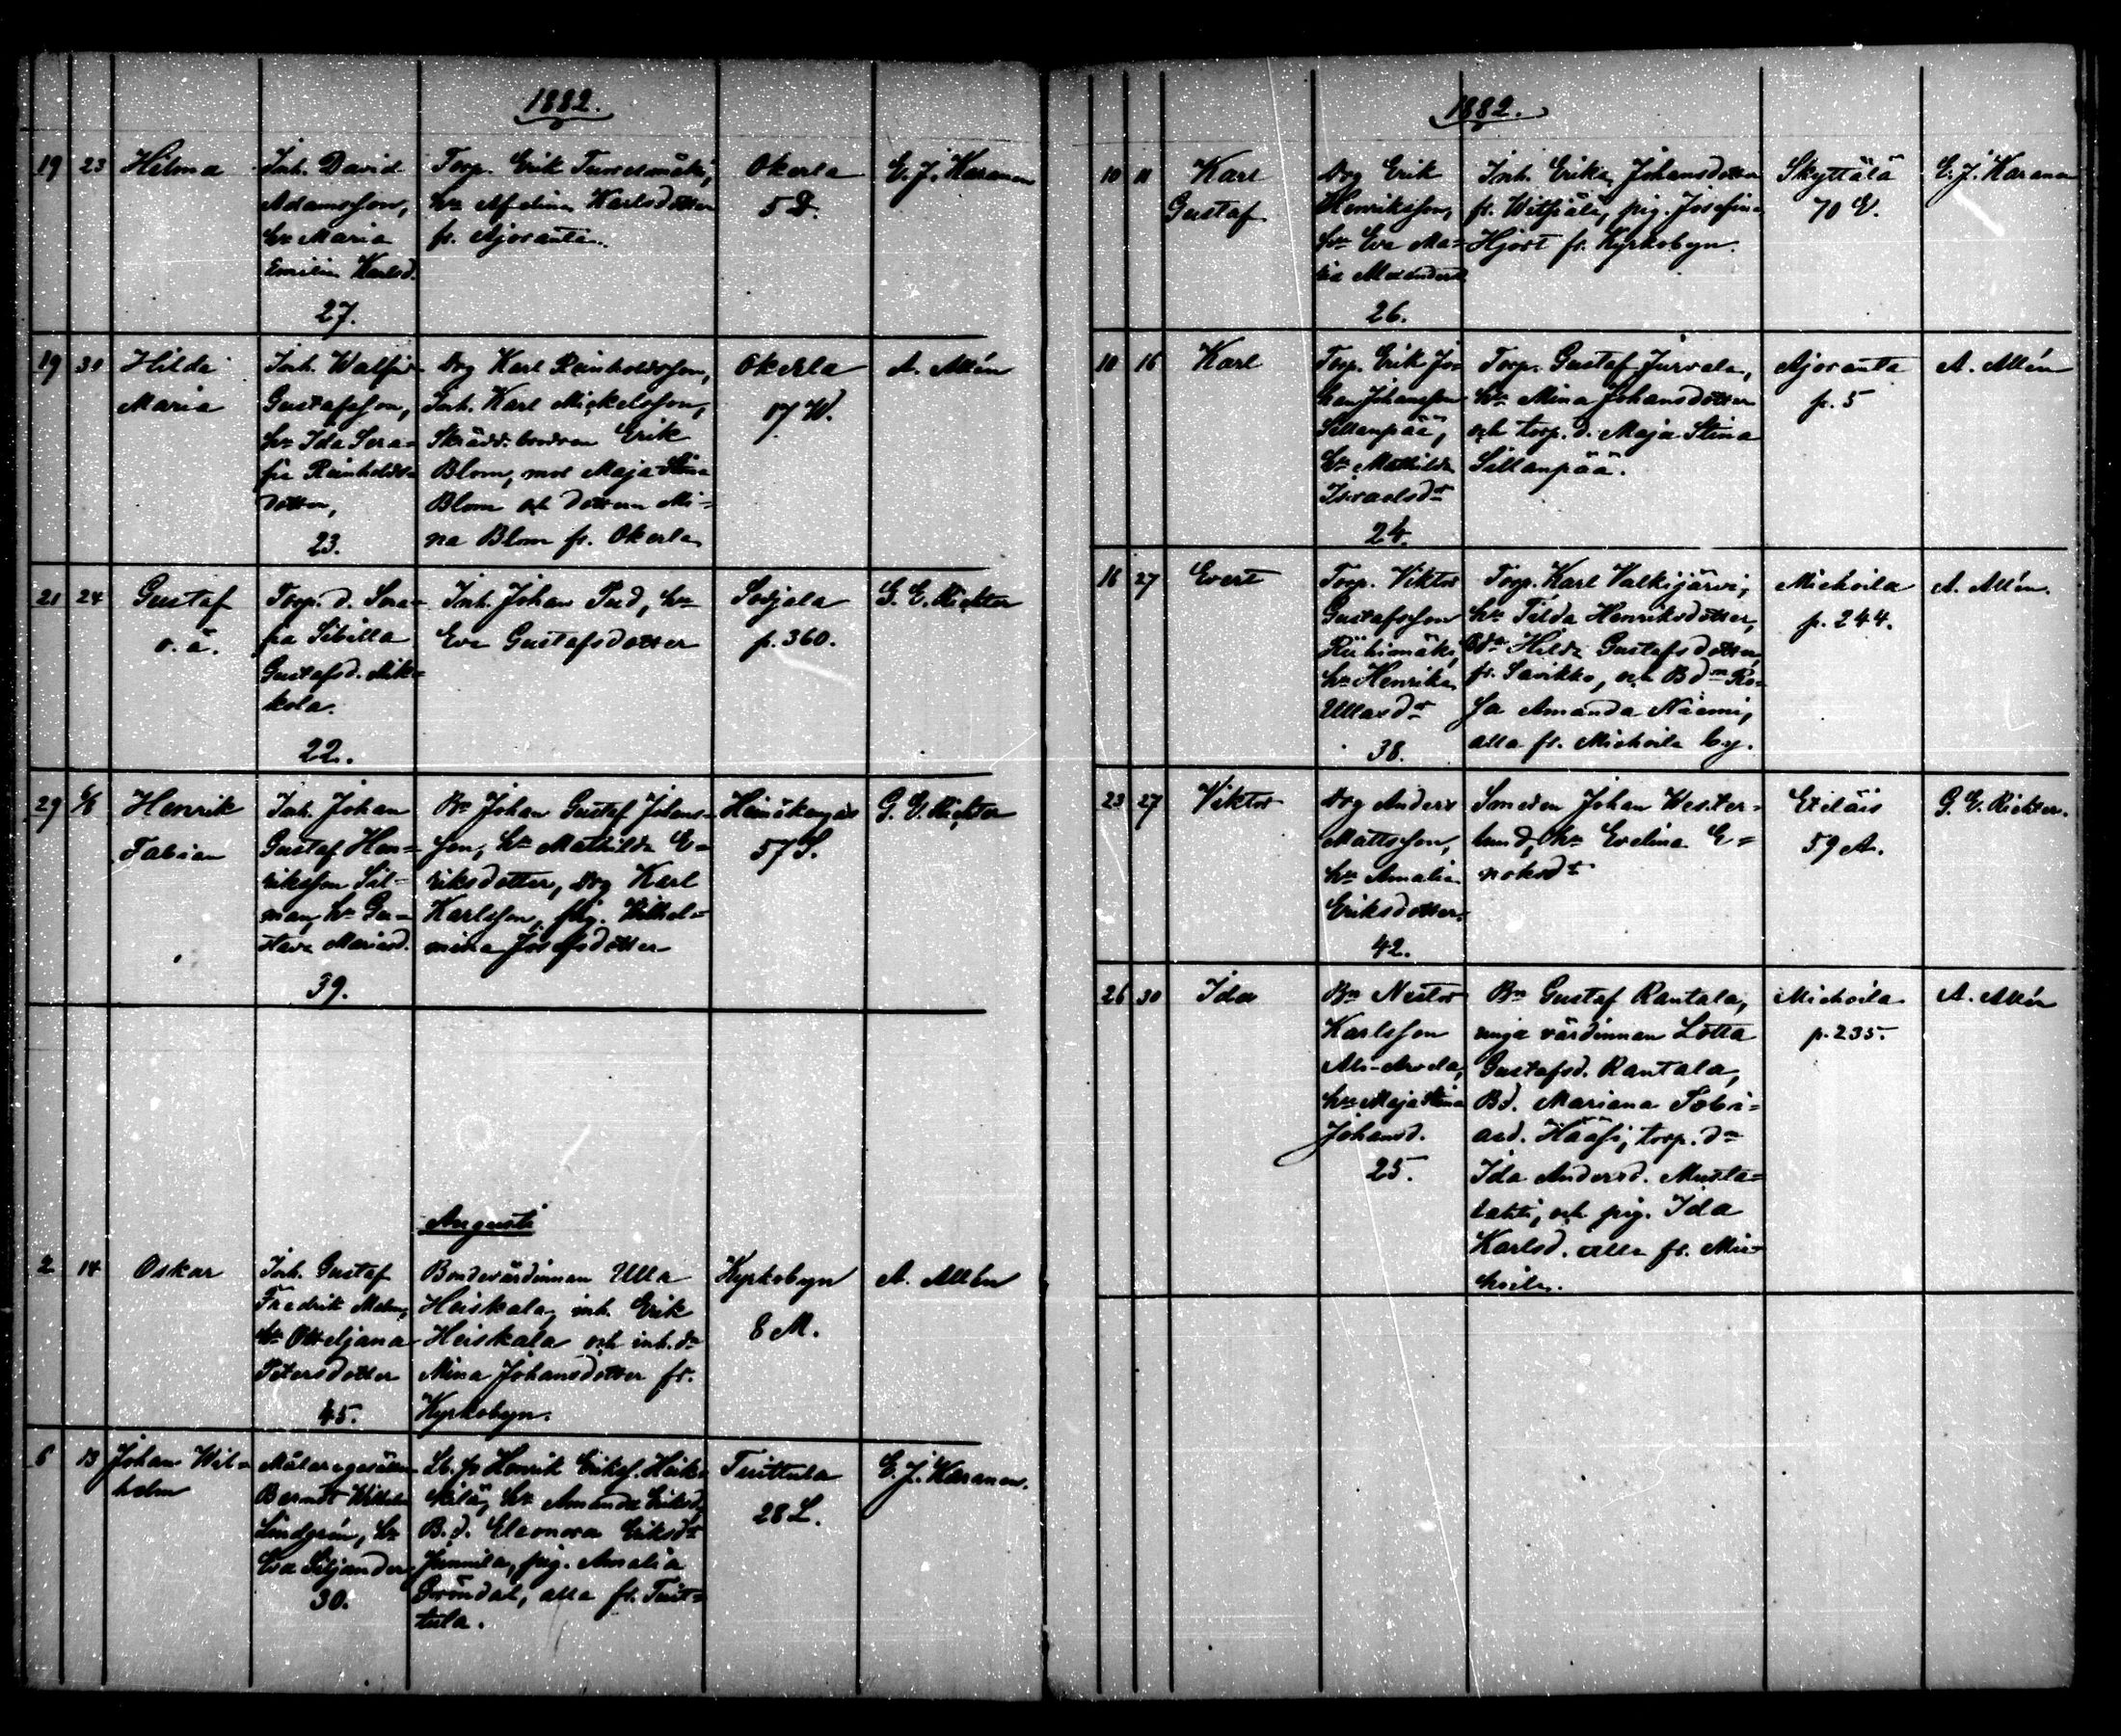 1882.
19 23 Hilma
Inh. David
Adamsson,
hu Maria
Emilia Karlsd.
27.
Torp. Erik
hu Karlsdotter
fr. Ajoranta.
Okerla
5 D.
E. J. Karanen
19 30 Hilda
Maria
Inh. Walfrid
Gustafsson,
hu Ida Sera-
fia Reinholds-
dotter,
23.
Drg Karl Reinholdsson,
Inh. Karl Mickelsson,
Erik
Blom, mor Maja Stina
Blom och dottern Mi-
na Blom fr. Okerla
Okerla
17 W.
A. Allén
21 24 Gustaf
o. ä.
Torp. d. Sera-
fia Sibilla
Gustafsd. Mik-
kola.
22.
Inh. Johan hu
Eva Gustafsdotter
Sorjala
p. 360.
G. E. Richter
29 6/8 Henrik
Fabian
Inh. Johan
Gustaf Hen-
riksson Sil-
man, hu Gu-
stava Mariasd.
39.
Bn Johan Gustaf Johans-
son, hu Mathilda E-
riksdotter, drg Karl
Karlsson, pig. Wilhel-
mina Josefsdotter
Heinäkangas
57 S.
G. E. Richter
Augusti
2 14 Oskar
Inh. Gustaf
Fredrik Malm,
hu Otteljana
Petersdotter
45.
Bondevärdinnan Ulla
Heiskala, inh. Erik
Heiskala och inh. dn
Mina Johansdotter fr.
Kyrkobyn.
Kyrkobyn
8 M.
A. Allén
6 13 Johan Wil-
helm
Målaregesällen
Berndt Wilhelm
Lindgrén, hu
Eva Siljander
30.
Henrik Eriksf. Heik-
kilä, hu Amanda Eriksd.
B. d. Eleonora Eriksdr
pig. Amalia
Gröndal, alla fr. Tuit-
tula.
Tuittula
28 L.
E. J. Karanen.
1882.
10 11 Karl
Gustaf
Drg Erik
Henriksson,
hu Eva Ma-
ria
26.
Inh. Erika Johansdotter
fr. pig. Josefina
Hjort fr. Kyrkobyn.
Skyttälä
70 E.
E. J. Karanen
10 16 Karl
Torp. Erik Jo-
han Johansson
Sillanpää,
hu Mathilda
Israelsdr
24.
Torp. Gustaf Jurvala,
hu Mina Johansdotter
och torp. d. Maja Stina
Sillanpää.
Ajoranta
p. 5
A. Allén
16 27 Evert
Torp. Viktor
Gustafsson
Riihimäki,
hu Henrika
Ullasdr
38.
Torp. Karl Valkijärvi,
hu Tilda Henriksdotter,
Bdn Hilda Gustafsdotter,
fr. Savikko, och Bdn Ro-
sa Amanda Näemi,
alla fr. Michoila by.
Michoila
p. 244.
A. Allén.
23 27 Viktor
Drg Anders
Mattsson,
hu Amalia
Eriksdotter.
42.
Smeden Johan Wester-
lund, hu Evelina E-
noksdr
Eteläis
59 A.
G. E. Richter.
26 30 Ida
Bn Nestor
Karlsson
Ali-Arvela,
hu Maja Stina
Johansd.
25.
Bn Gustaf Rantala,
unga värdinnan Lotta
Gustafsd. Rantala,
Bd. Mariana Tobi-
asd. Hääsi, torp. dn
Ida Andersd. Musta-
lahti, och pig. Ida
Karlsd. alla fr. Mi-
choila.
Michoila
p. 235.
A. Allén